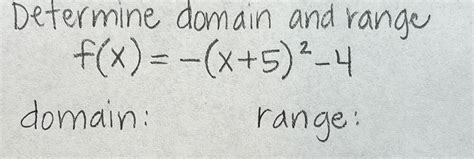 Determine domain and range
f(x) = -(x+5)² -4
domain: range: